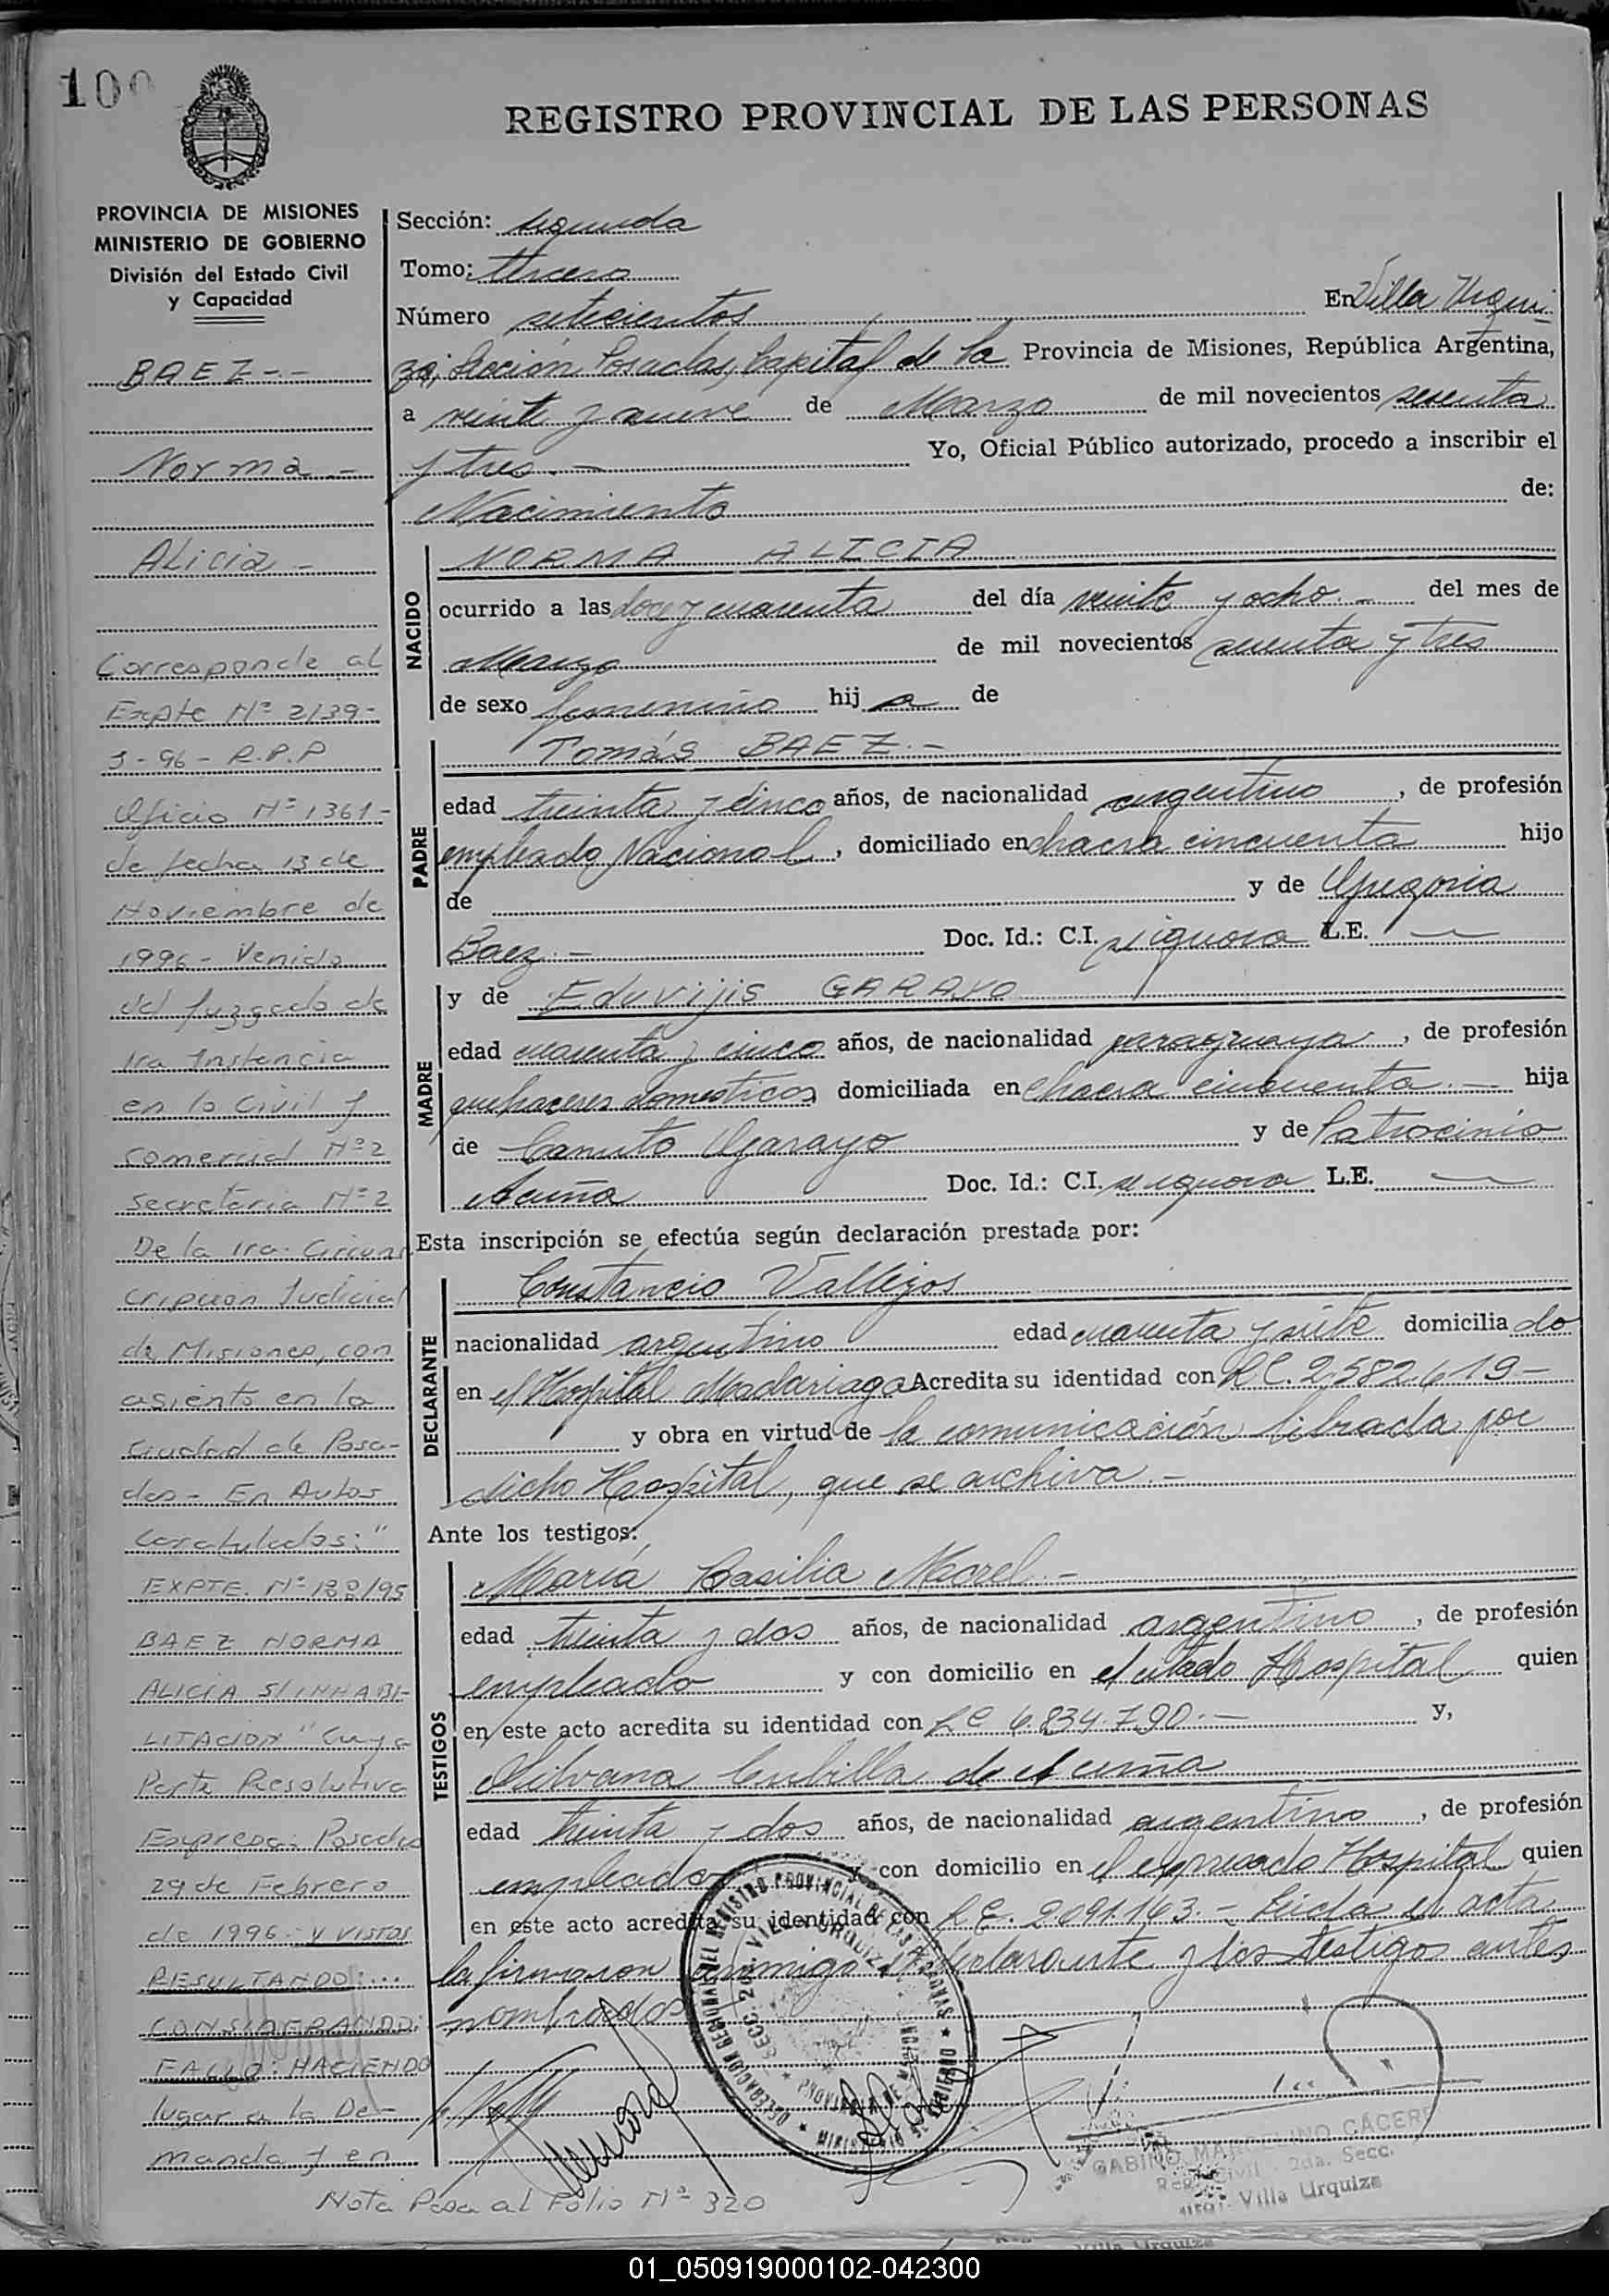 100
REGISTRO PROVINCIAL DE LAS PERSONAS
PROVINCIA DE MISIONES
MINISTERIO DE GOBIERNO
División del Estado Civil
y Capacidad
BAEZ - -
Norma -
Alicia -
Corresponde al
Expte Nº 2139-
J-96- R.P.P
Oficio Nº 1361-
de fecha 13 de
Noviembre de
1996- Venido
del Juzgado de
1ra Instancia
en lo Civil y
Comercial Nº 2
Secretaria Nº 2
De la 1ra. Circuns
cripcion Judicial
de Misiones, con
asiento en la
Ciudad de Posa-
das - En Autos
Caratulados: "
EXPTE. Nº 132/95
BAEZ NORMA
ALICIA S/INHABI-
LITACION" Cuya
Parte Resolutiva
Expresa: Posadas
29 de Febrero
de 1996. Y VISTOS
RESULTANDO: ...
CONSIDERANDO:
FALLO: HACIENDO
lugar a la De-
manda y en
Nota Pasa al Folio Nº 320
Sección: segunda
Tomo: tercero
Número setecientos En Villa Urqui
za, Sección Posadas, Capital de la Provincia de Misiones, República Argentina,
a veinte y nueve de Marzo de mil novecientos sesenta
y tres. - Yo, Oficial Público autorizado, procedo a inscribir el
Nacimiento de:
NACIDO
NORMA ALICIA
ocurrido a las doce y cuarenta del día veinte y ocho. - del mes de
Marzo de mil novecientos sesenta y tres
de sexo femenino hij a de
PADRE
Tomás BAEZ. -
edad treinta y cinco años, de nacionalidad argentino, de profesión
empleado Nacional, domiciliado en chacra cincuenta hijo
de y de Gregoria
Baez. - Doc. Id.: C.I. se ignora L.E. —
MADRE
y de Eduvijis GARAYO
edad cuarenta y cinco años, de nacionalidad paraguaya, de profesión
quehaceres domesticos domiciliada en chacra cincuenta. - hija
de Canuto Garayo y de Patrocinia
Acuña Doc. Id.: C.I. se ignora L.E. —
Esta inscripción se efectúa según declaración prestada por:
DECLARANTE
Constancio Vallejos
nacionalidad argentino edad cuarenta y siete domicilia do
en el Hospital Madariaga Acredita su identidad con L.E. 2.582.619-
y obra en virtud de la comunicación librada por
dicho Hospital, que se archiva. -
Ante los testigos:
TESTIGOS
María Basilia Morel. -
edad treinta y dos años, de nacionalidad argentino, de profesión
empleado y con domicilio en el citado Hospital quien
en este acto acredita su identidad con L.C 6.834.790. - y,
Silvana Cubilla de Acuña
edad treinta y dos años, de nacionalidad argentino, de profesión
empleado y con domicilio en el expresado Hospital quien
en este acto acredita su identidad con L.C. 2091163. - Leída el acta
la firmaron conmigo el declarante y los testigos antes
nombrados
GABINO MARCELINO CÁCERE
Reg. Civil - 2da. Secc.
Villa Urquiza
Villa Urquiza
01_050919000102-042300